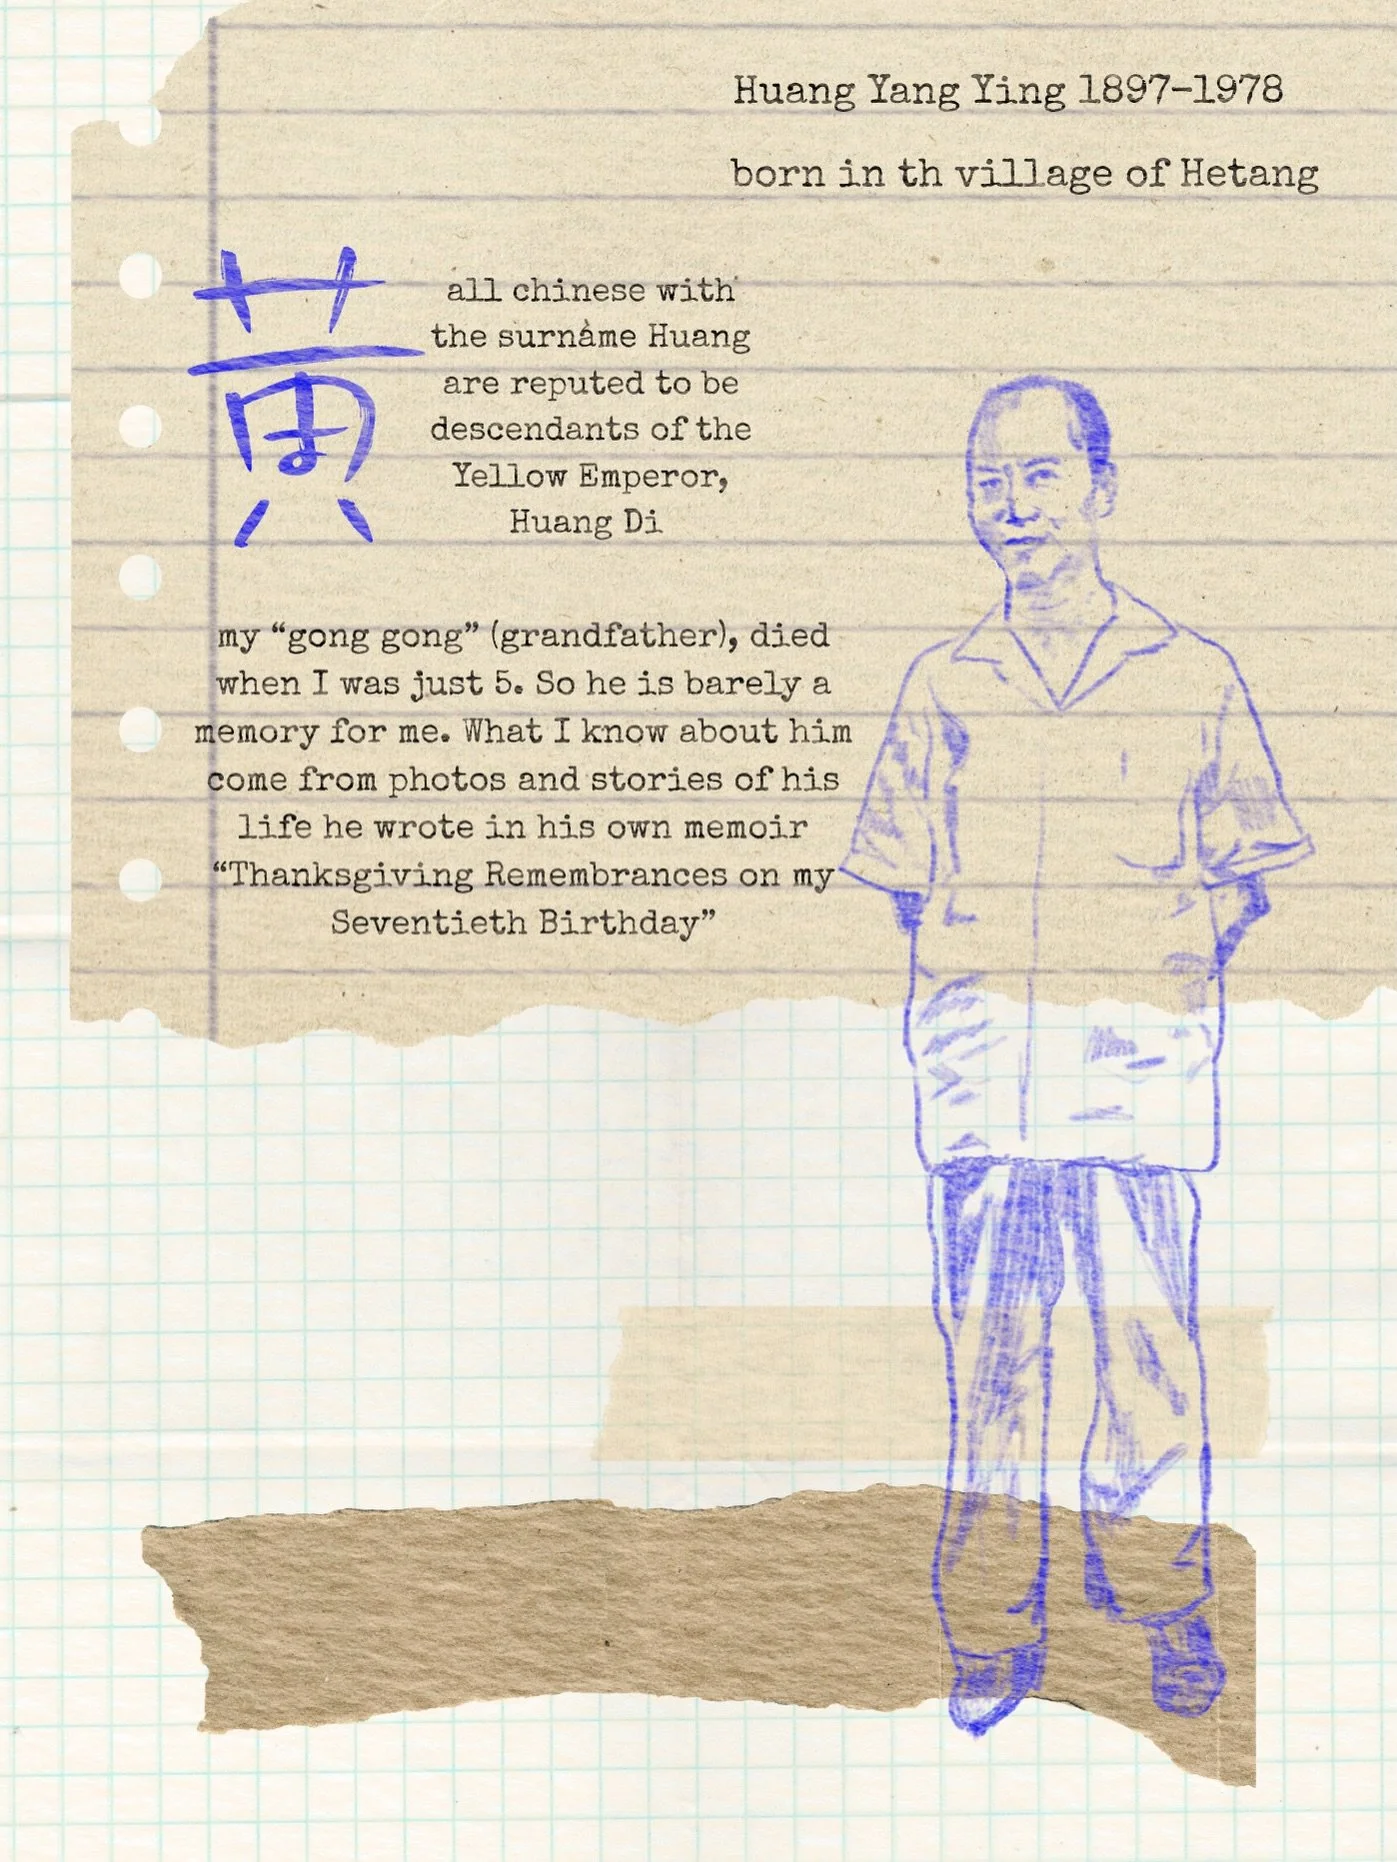 Huang Yang Ying 1897-1978
born in th village of Hetang
黄
all chinese with
the surname Huang
are reputed to be
descendants of the
Yellow Emperor,
Huang Di
my “gong gong” (grandfather), died
when I was just 5. So he is barely a
memory for me. What I know about him
come from photos and stories of his
life he wrote in his own memoir
“Thanksgiving Remembrances on my
Seventieth Birthday”